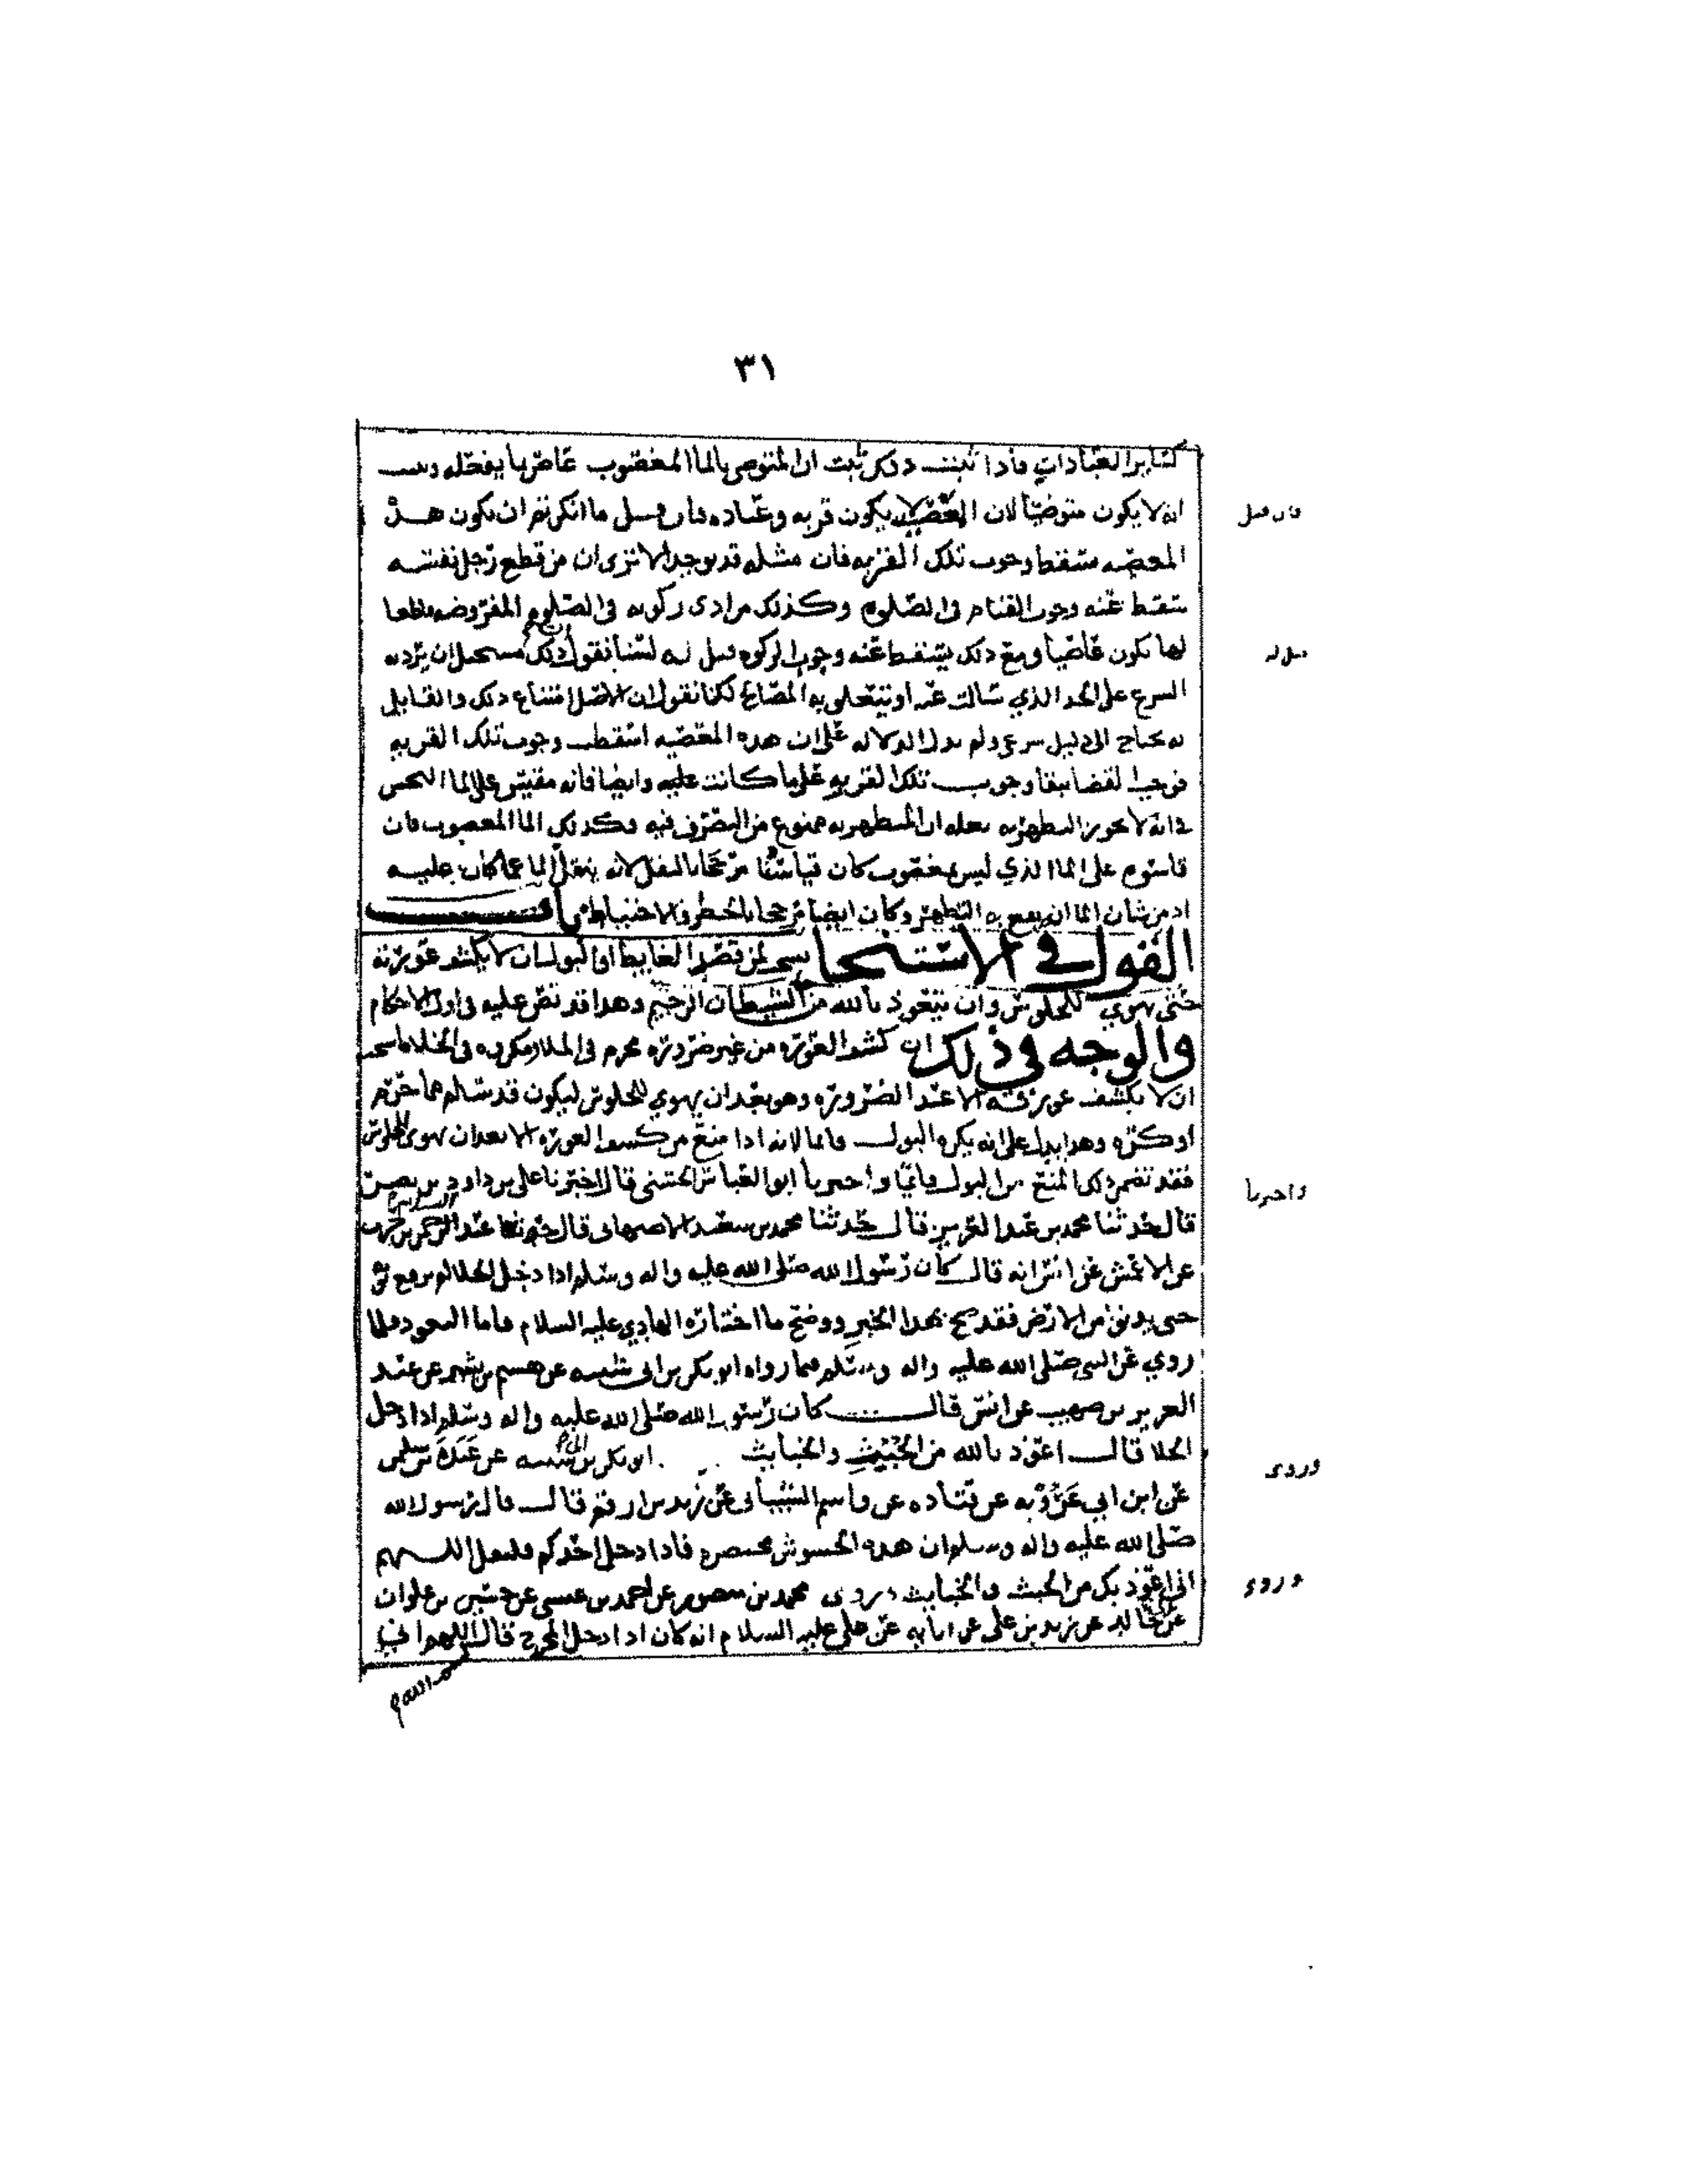 ٣١
كسائر العبادات فاذا ثبت ذلك ثبت ان المتوضي بالما المغصوب عاص بما يفعله وثبت
انه لا يكون متوضيا لان المعصية لا يكون قربه وعباده فان قيل ما انكرتم ان تكون هذه
فان قيل
المعصيه مسقط وجوب تلك القربه فان مثله قد يوجد الا ترى ان من قطع رجل نفسه
سقط عنه وجوب القيام في الصلوه وكذلك من ادى زكوته في الصلوه المفروضه قاطعا
لها يكون عاصيا ومع ذلك يسقط عنه وجوب الزكوه قيل له لسنا نقول ان ذلك مستحيل ان يرد به
قيل له
الشرع على الحد الذي سالت عنه او تتعلق به المصالح لكنا نقول ان الاصل امتناع ذلك والقايل
به يحتاج الى دليل شرعي ولم يدل الدلاله على ان هذه المعصيه اسقطت وجوب تلك القربه
فوجب القضا ببقا وجوب تلك القربه على ما كانت عليه وايضا فانه مقيس على الما النجس
في انه لا يجوز التطهر به بعله ان المتطهر به ممنوع من التصرف فيه وكذلك الما المغصوب فان
قاسوه على الما الذي ليس بمغصوب كان قياسنا مرجحا بالنقل لانه ينقل الما عما كان عليه
اذ من شان الما ان يقع به التطهر وكان ايضا مرجحا بالحظر والاحتياط
القول في الاستنجا يستحب لمن قصد الغايط او البول ان لا يكشف عورته
حتى يهوي للجلوس وان يتعوذ بالله من الشيطان الرجيم وهذا قد نص عليه في اول الاحكام
والوجه في ذلك ان كشف العوره من غير ضروره محرم في الملا ومكروه في الخلا فاستحب
ان لا يكشف عورته الا عند الضروره وهو بعد ان يهوي للجلوس ليكون قد سالم مما حرم
او كره وهذا يدل على انه يكره البول قايما لانه اذا منع من كشف العوره الا بعد ان يهوى للجلوس
فقد تضمن ذلك المنع من البول قايما واخبرنا ابو العباس الحسني قال اخبرنا علي بن داود بن نصر
واخبرنا
قال حدثنا محمد بن عبد العزيز قال حدثنا محمد بن سعيد الاصبهاني قال حدثنا عبد السلام بن حرب
عن الاعمش عن انس انه قال كان رسول الله صلى الله عليه واله وسلم اذا دخل الخلا لم يرفع ثوبه
حتى يدنو من الارض فقد صح بهذا الخبر ووضح ما اختاره الهادي عليه السلام فاما التعوذ فلما
روي عن النبي صلى الله عليه واله وسلم فيما رواه ابو بكر بن ابي شيبه عن هشيم بن بشير عن عبد
العزيز بن صهيب عن انس قال كان رسول الله صلى الله عليه واله وسلم اذا دخل
الخلا قال اعوذ بالله من الخبث والخبايث ابو بكر بن ابي شيبه عن عبدة بن سليمن
وروى
عن ابن ابي عروبه عن قتاده عن قاسم الشيباني عن زيد بن ارقم قال قال رسول الله
صلى الله عليه واله وسلم ان هذه الحشوش محتضره فاذا دخل احدكم فليقل اللهم
اني اعوذ بك من الخبث والخبايث وروى محمد بن منصور عن احمد بن عيسى عن حسين بن علوان
وروى
عن ابي خالد عن زيد بن علي عن ابايه عن علي عليه السلام انه كان اذا دخل المخرج قال اللهم اني